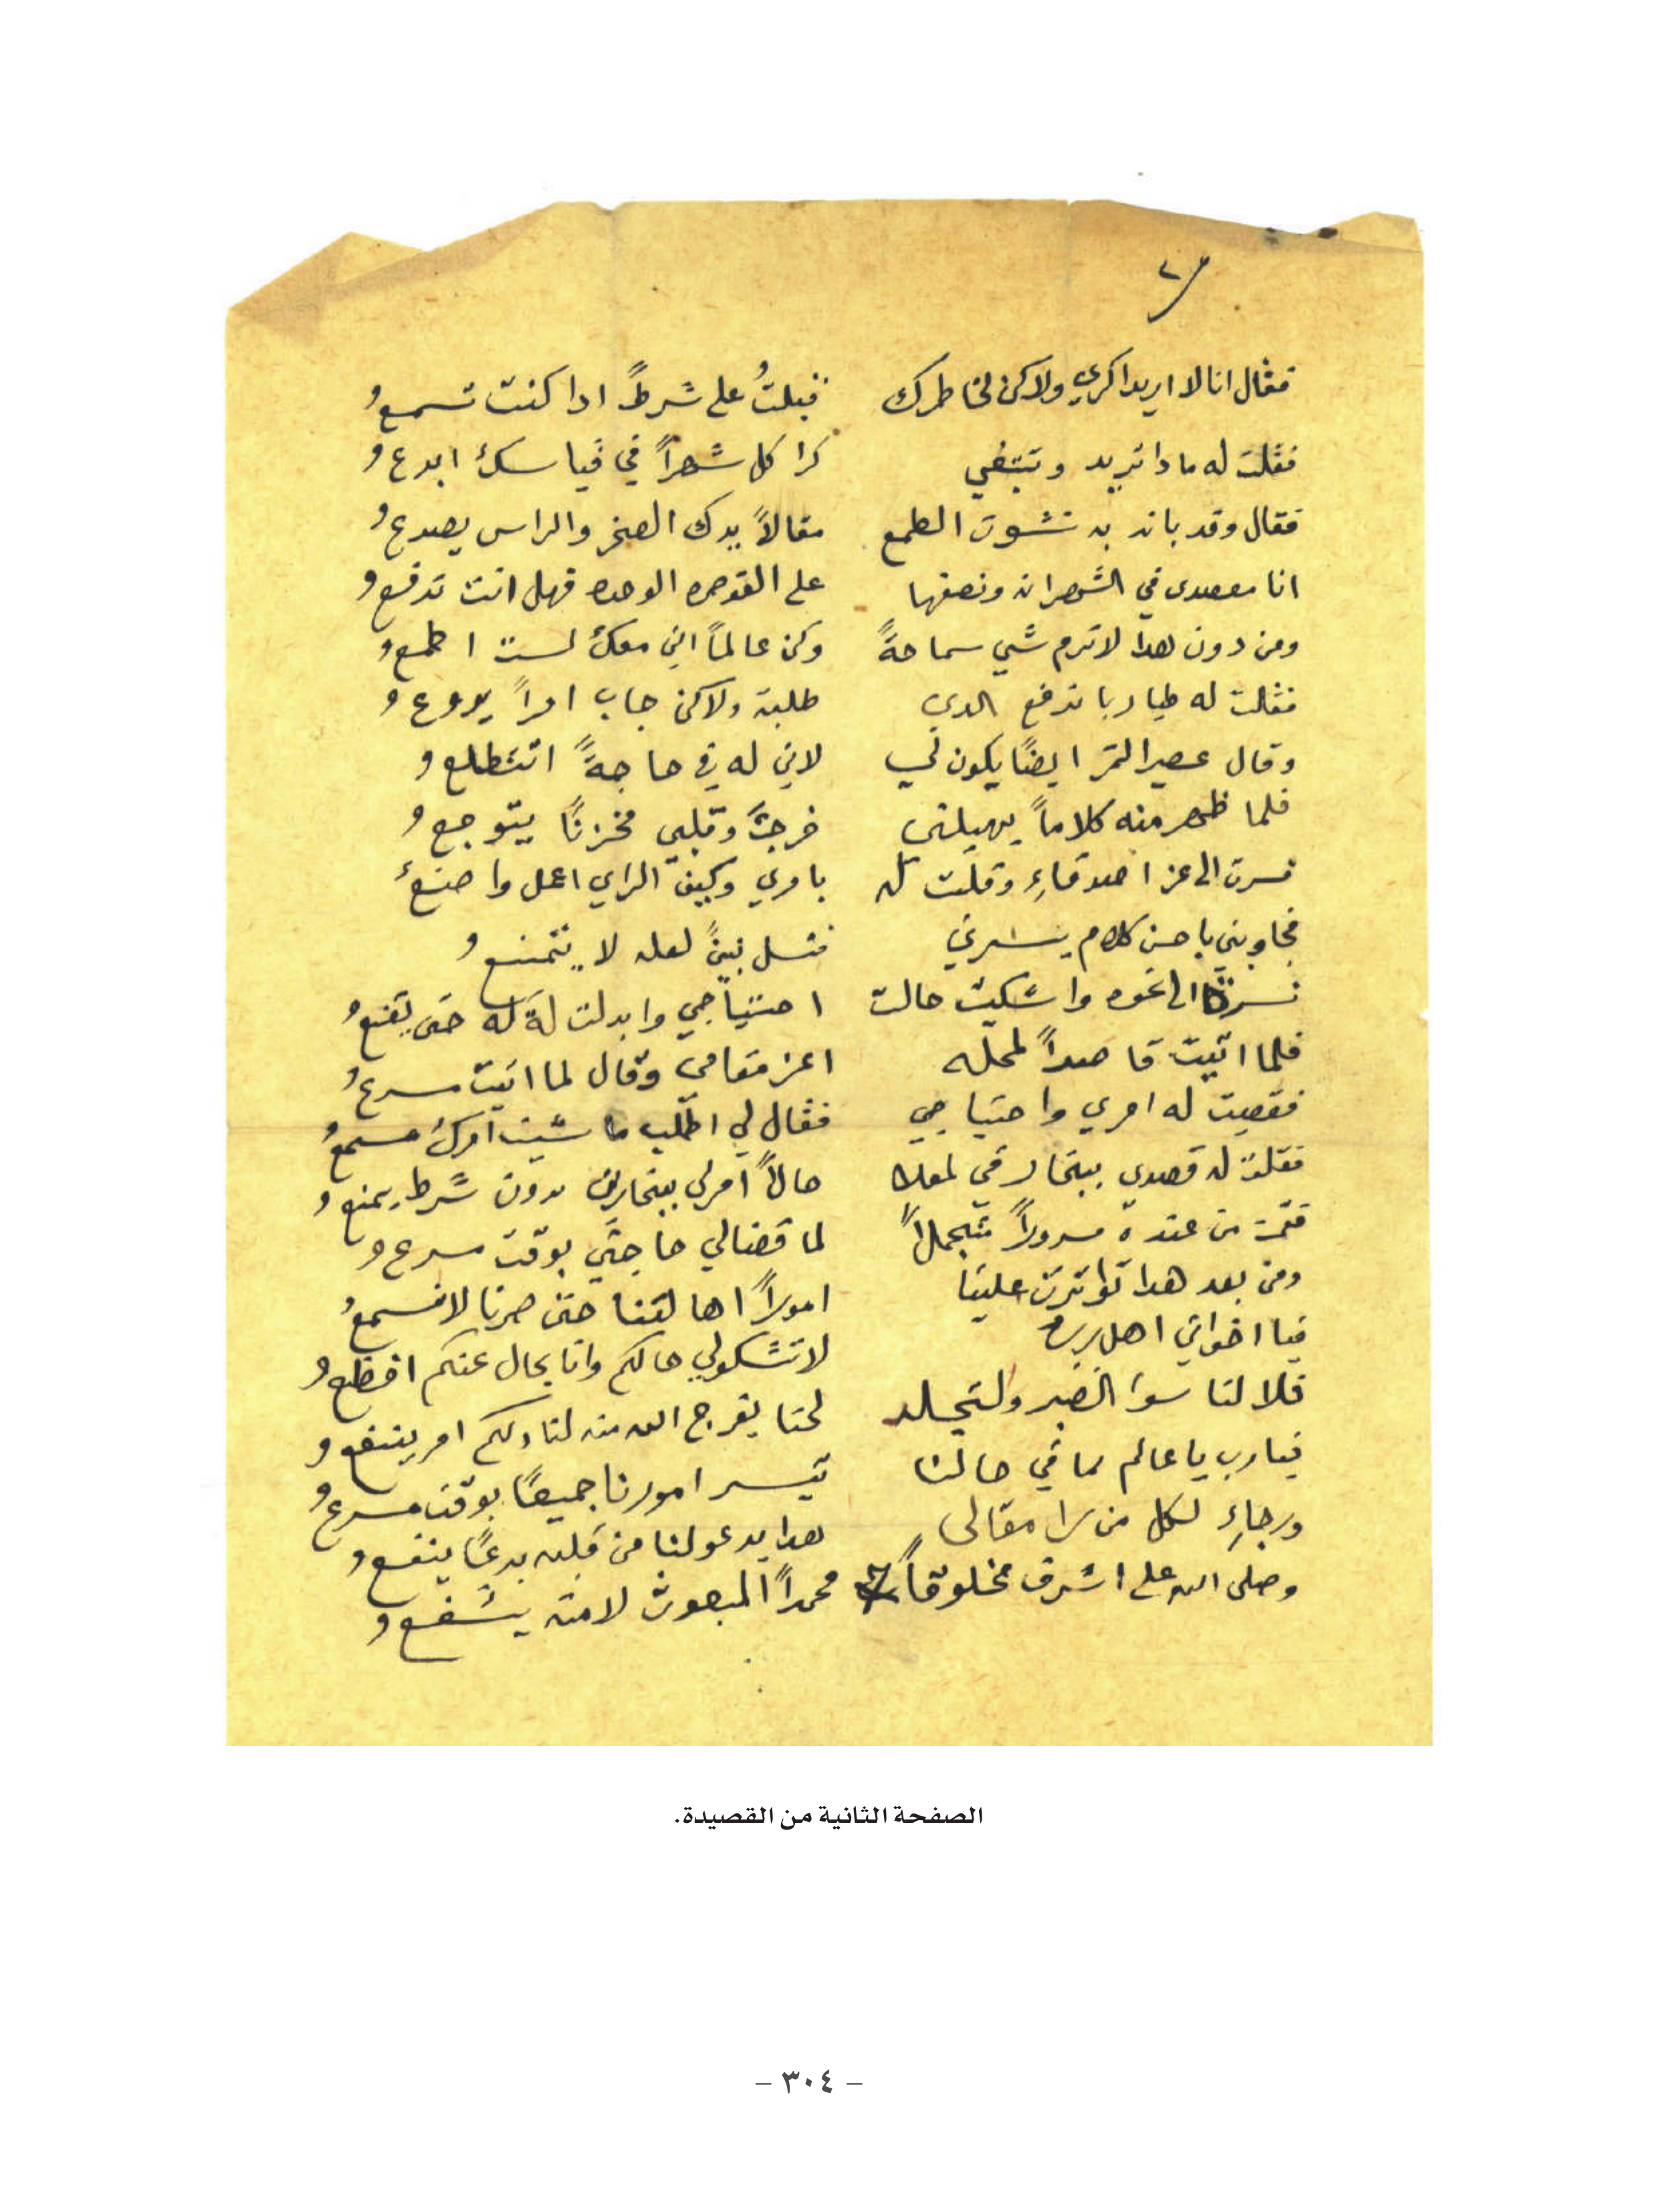 فقال انا لا اريد اكري ولاكن لخاطرك قبلتُ على شرطً ادا كنت تسمعُ
فقلت له مادا تريد وتبتغي كرا كل شهراً في قياسك ابدعُ
فقال وقد بانه به نشوت الطمع مقالاً يدك الصخر والراس يصدعُ
انا مقصدي في الشهران ونصفها على القوصره الوحده فهل انت تدفعُ
ومن دون هدا لا ترم شي سماحةً وكن عالماً اني معك لست اطمعُ
فقلت له طيا ربا ندفع الدي طلبته ولاكن جاب امراً يروعُ
وقال عصير التمر ايضاً يكون لي لاني له في حاجةً اتتطلعُ
فلما ظهر منه كلاماً يهيلني خرجتُ وقلبي مخزناً يتوجعُ
فسرت الى عز اصدقاءِ وقلت له بامري وكيف الراي اعمل واصنعُ
فجاوبني باحسن كلام يسرني فسل نبيً لعله لا يتمنعُ
فسرت الى نحوه واشكيت حالت احتياجي وابدلت له حتى يقنعُ
فلما اتيت قاصداً لمحله اعز مقامي وقال لما اتيت مسرعُ
فقصيت له امري واحتياجي فقال لي اطلب ما شيت امرك مسمعُ
فقلت له قصدي ببخار في لمعلا حالاً امر لي ببخارين بدون شرط يمنعُ
فقمت من عنده مسروراً متجملاً لما قضالي حاجتي بوقت مسرعُ
ومن بعد هدا تواترت علينا اموراً اهالتنا حتى صرنا لا نسمعُ
فيا اخواني اهل لا تشكولي حالكم وانا بحال عنكم افظعُ
فلا لنا سوا الصبر والتجلد لحتا يفرج الله منه لنا ولكم امر ينفعُ
فيارب يا عالم لما في حالنا تيسر امورنا جميعاً بوقت مسرعُ
ورجاءِ لكل من را مقالي هدا يدعو لنا من قلبه بدعاً ينفعُ
وصلى الله على اشرف مخلوقاً محمداً المبعوث لامته يشفعُ
الصفحة الثانية من القصيدة.
– ٣٠٤ –